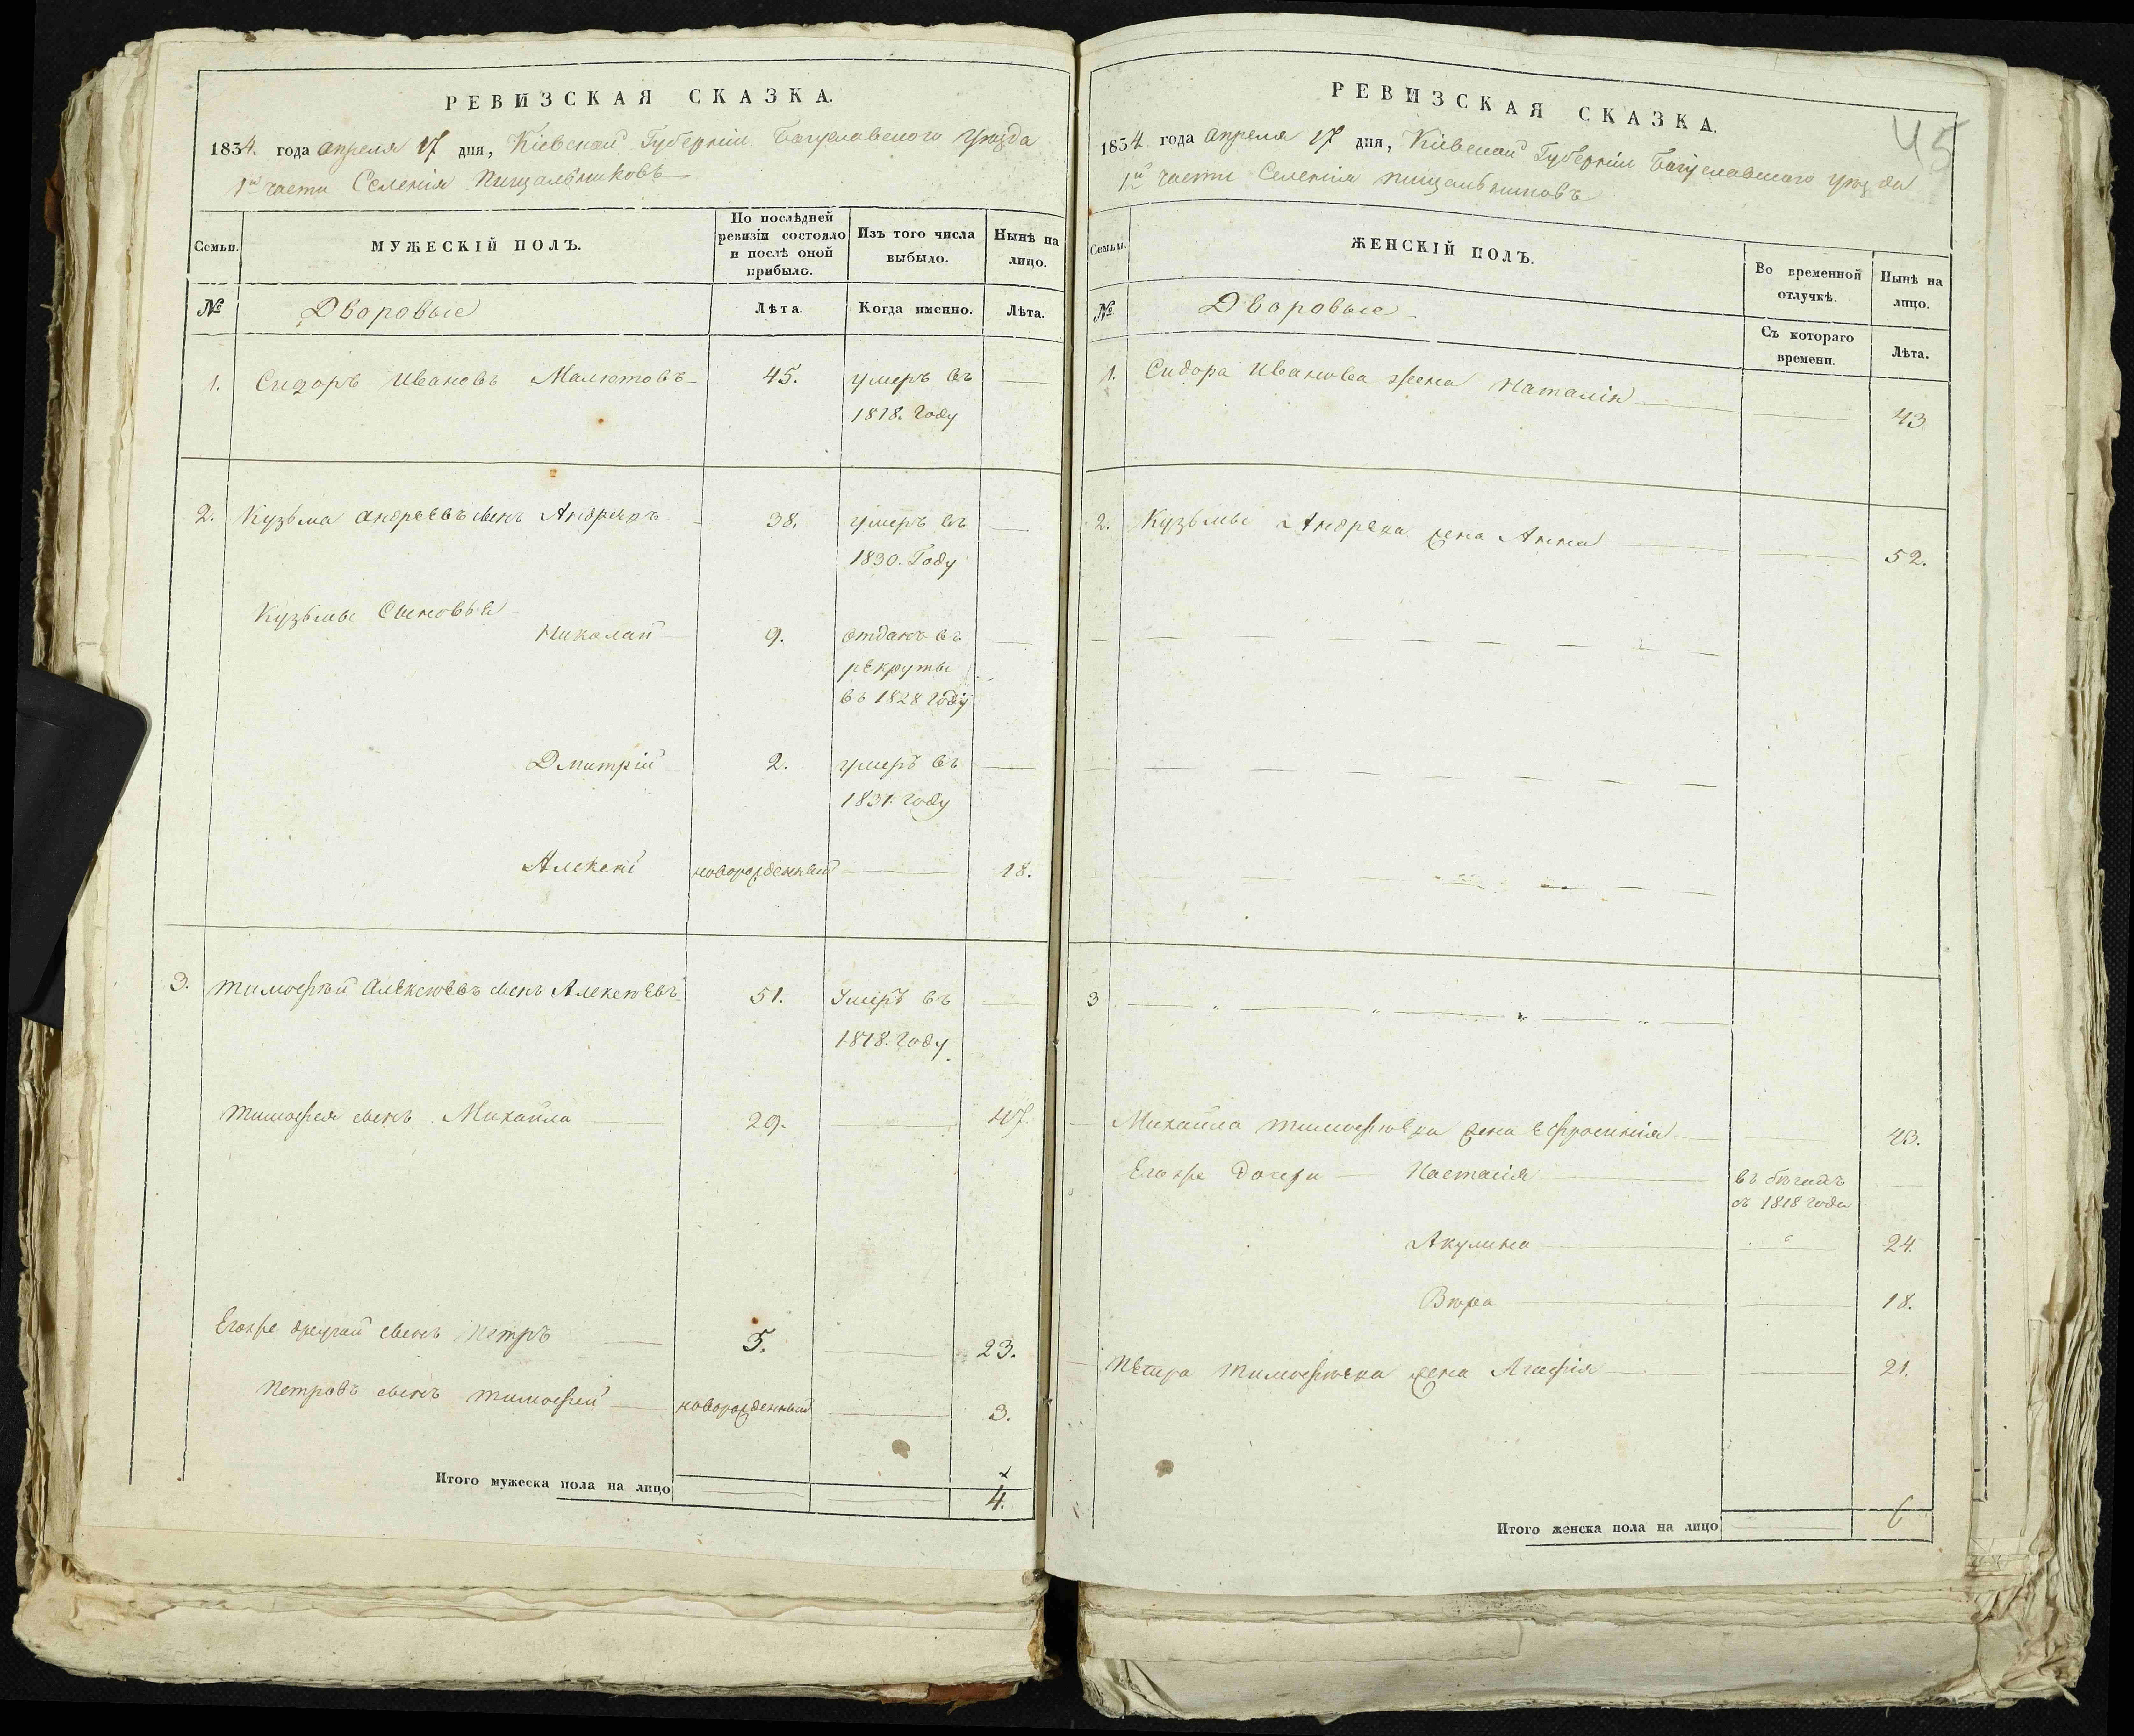 РЕВИЗСКАЯ СКАЗКА.
1834. года апреля 17 дня, Кіевской Губерніи Богуславского Уѣзда
1й части Селенія Пищальниковъ
Семьи.
МУЖЕСКІЙ ПОЛЪ.
По послѣдней ревизіи состояло и послѣ оной прибыло.
Изъ того числа выбыло.
Нынѣ на лицо.
№
Дворовые
Лѣта.
Когда именно.
Лѣта.
1. Сидоръ Ивановъ Малютовъ 45. умеръ въ
1818. году
2. Кузьма андреевъ сынъ Андреяхъ 38. умеръ въ
1830. Году
Кузьмы Сыновья
Николай 9. отданъ въ
рекруты
въ 1828 году
Дмитрій 2. умеръ въ
1831. году
Алексей новорожденный 18.
3. Тимофѣй Алексѣевъ сынъ Алексѣевъ 51. Умеръ въ
1818. году
Тимофея сынъ Михайло 29. 47.
Егожъ другой сынъ Петръ 5. 23.
Петровъ сынъ Тимофей новорожденный 3.
Итого мужеска пола на лицо 4.
45
РЕВИЗСКАЯ СКАЗКА.
1834. года апреля 17 дня, Кіевской Губерніи Богуславского уѣзда
1й части Селенія Пищальниковъ
Семьи.
ЖЕНСКІЙ ПОЛЪ.
Во временной отлучкѣ.
Нынѣ на лицо.
№
Дворовые
Съ котораго времени.
Лѣта.
1. Сидора Иванова жена Наталія 43
2. Кузьмы Андреяха жена Анна 52.
3
Михайла Тимофѣева жена Ефросинія 43.
Егоже дочери Настасія въ бѣгахъ
съ 1818 года
Акулина 24.
Вѣра 18.
Петра Тимофѣева жена Агафія 21.
Итого женска пола на лицо 6